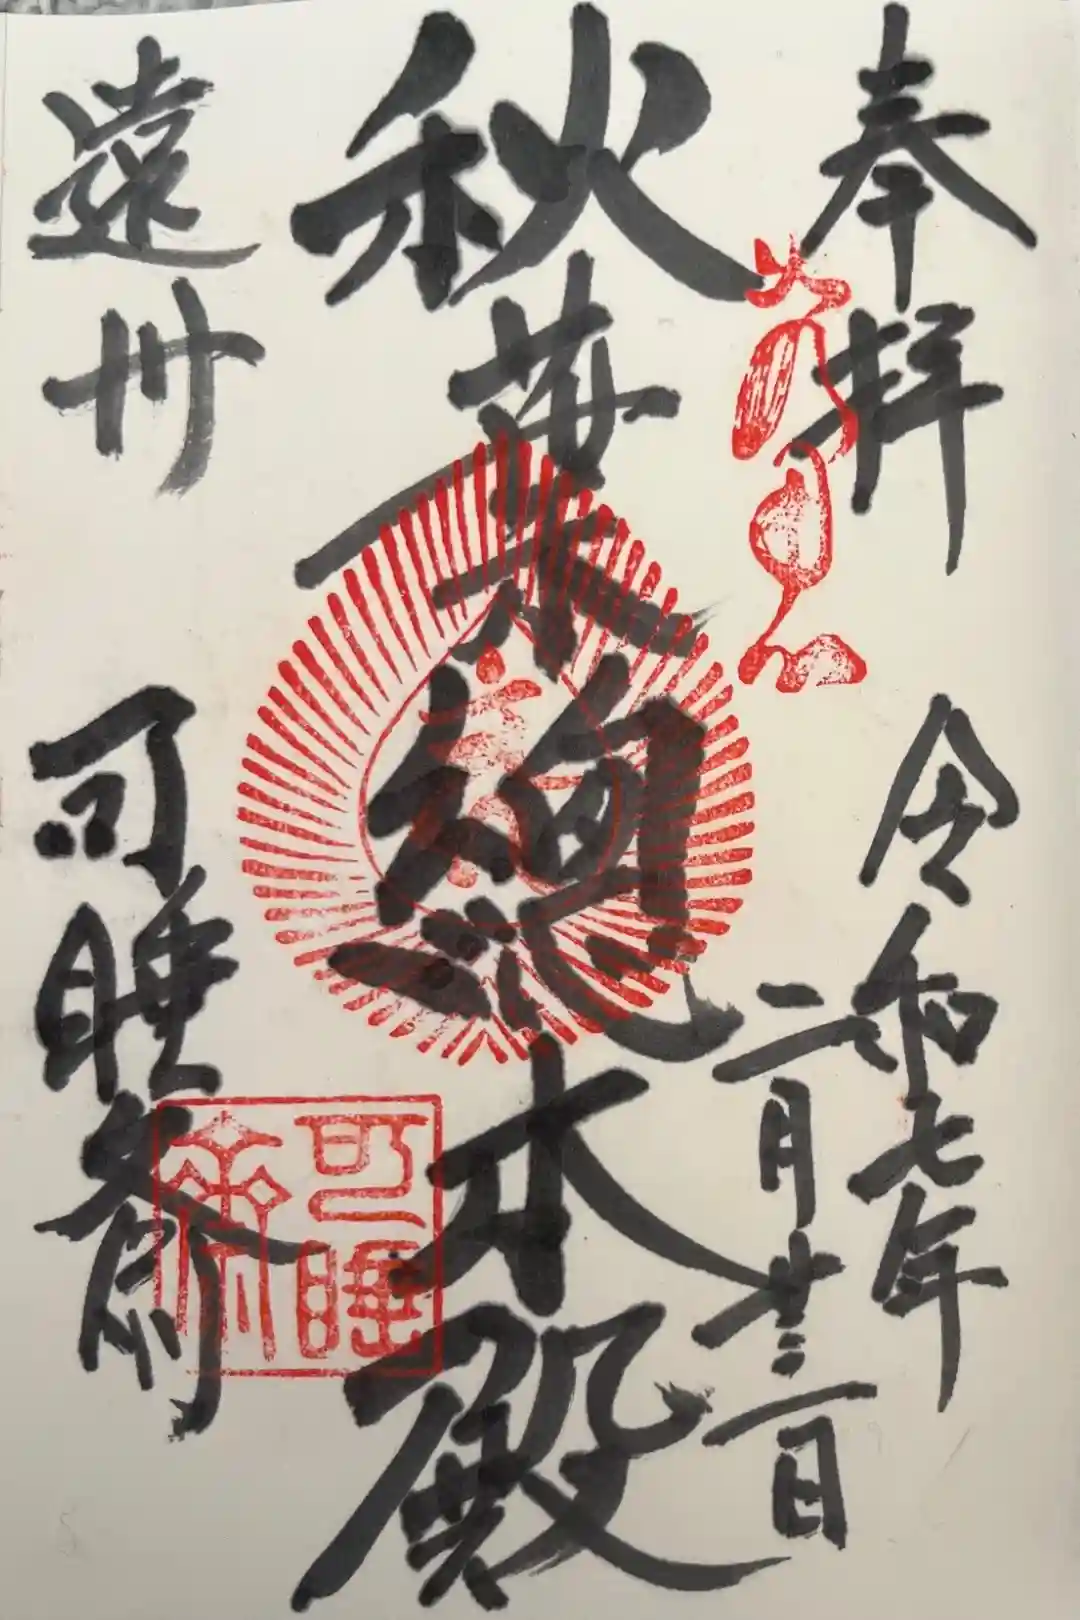 奉拝
令和七年
二月廿三日
秋葉總本殿
遠州
可睡斎
可睡
斎